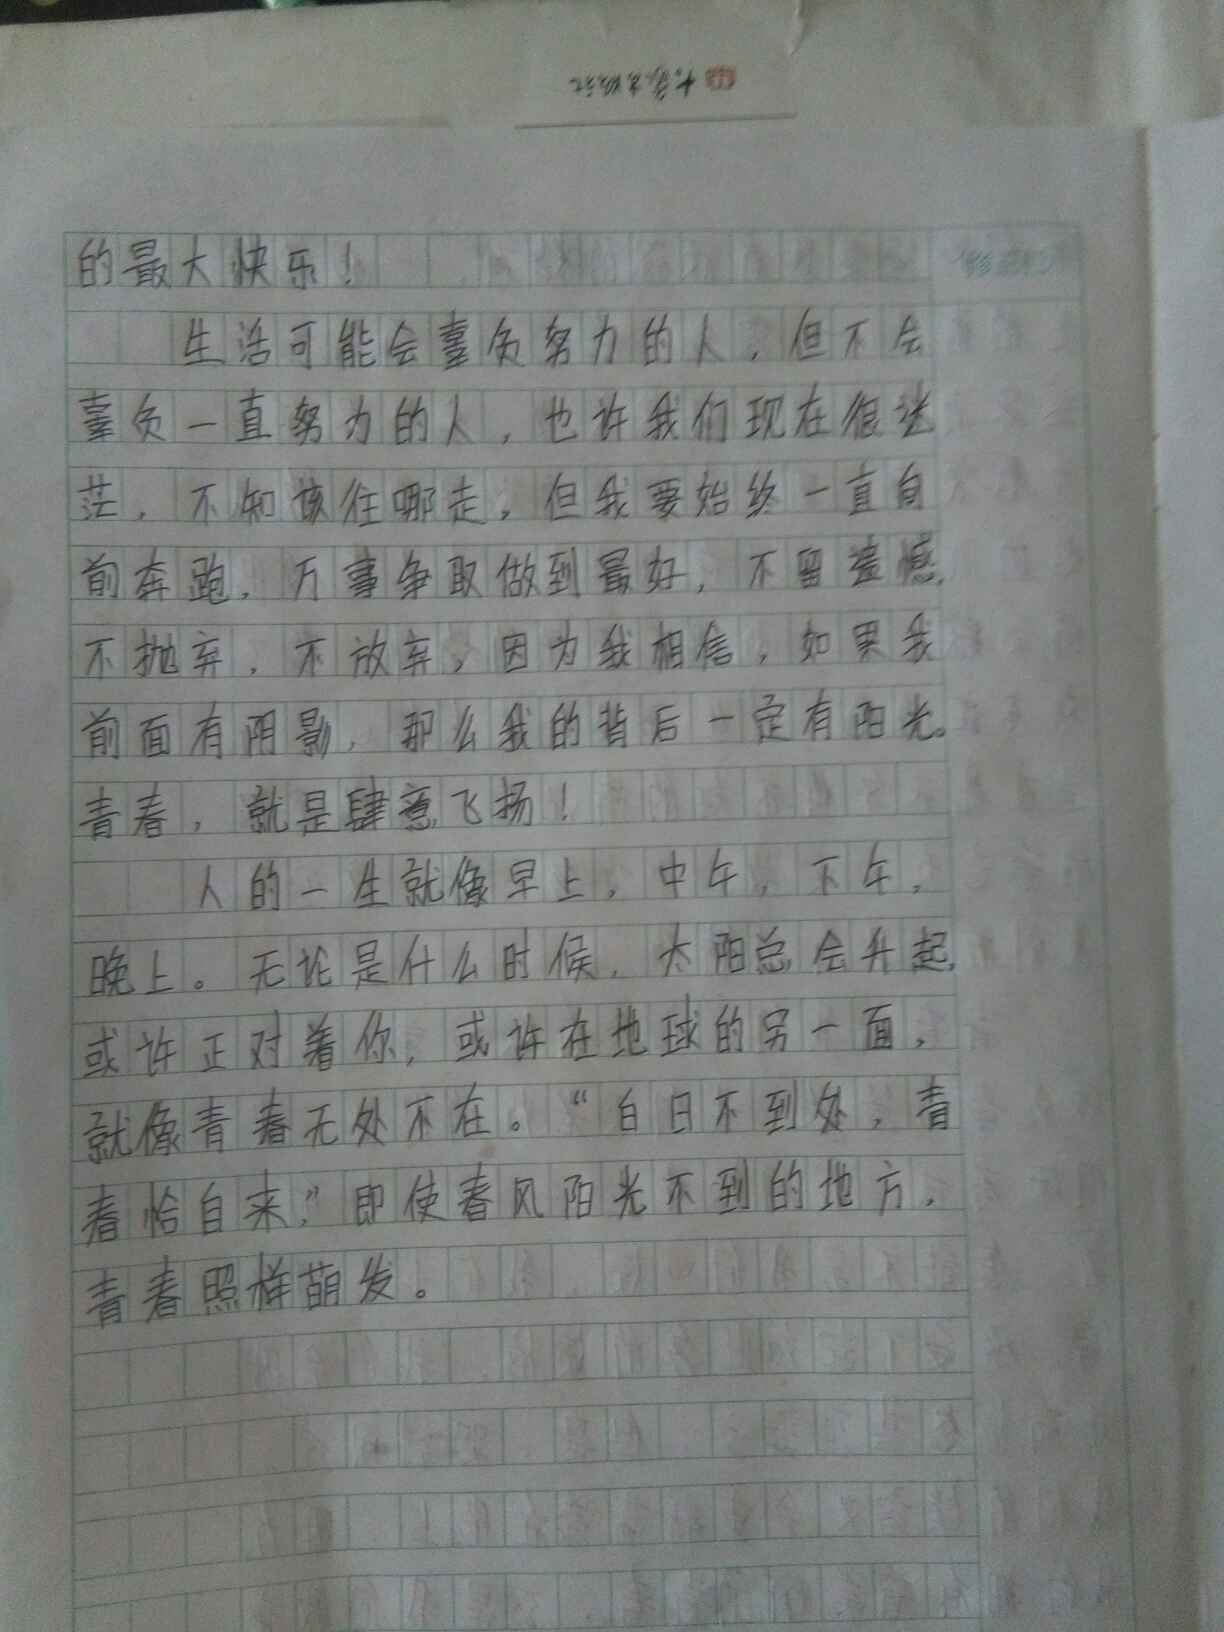 的最大快乐！
生活可能会辜负努力的人，但不会
辜负一直努力的人，也许我们现在很迷
茫，不知该往哪走，但我要始终一直向
前奔跑，万事争取做到最好，不留遗憾，
不抛弃，不放弃，因为我相信，如果我
前面有阴影，那么我的背后一定有阳光。
青春，就是肆意飞扬！
人的一生就像早上，中午，下午，
晚上。无论是什么时候，太阳总会升起，
或许正对着你，或许在地球的另一面，
就像青春无处不在。“白日不到处，青
春恰自来，”即使春风阳光不到的地方，
青春照样萌发。